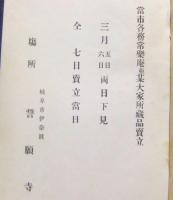 當市各務常樂庵並某大家所藏品賣立
三月五日六日兩日下見
仝七日賣立當日
岐阜市伊奈波
塲所 誓願寺